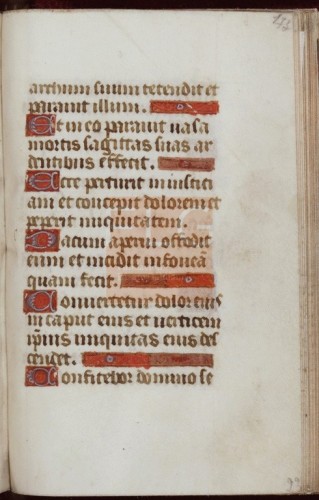 archum suum tetendit et
parauit illum.
Et in eo parauit uasa
mortis sagittas suas ar
dentibus effecit.
Ecce parturit iniustici
am et concepit dolorem et
peperit iniquitatem.
Lacum aperuit et effodit
eum et incidit in foueã
quam fecit.
Conuertetur dolor eius
in caput eius et in uerticem
ip̃ius iniquitas eius des
cendet.
Confitebor domino se